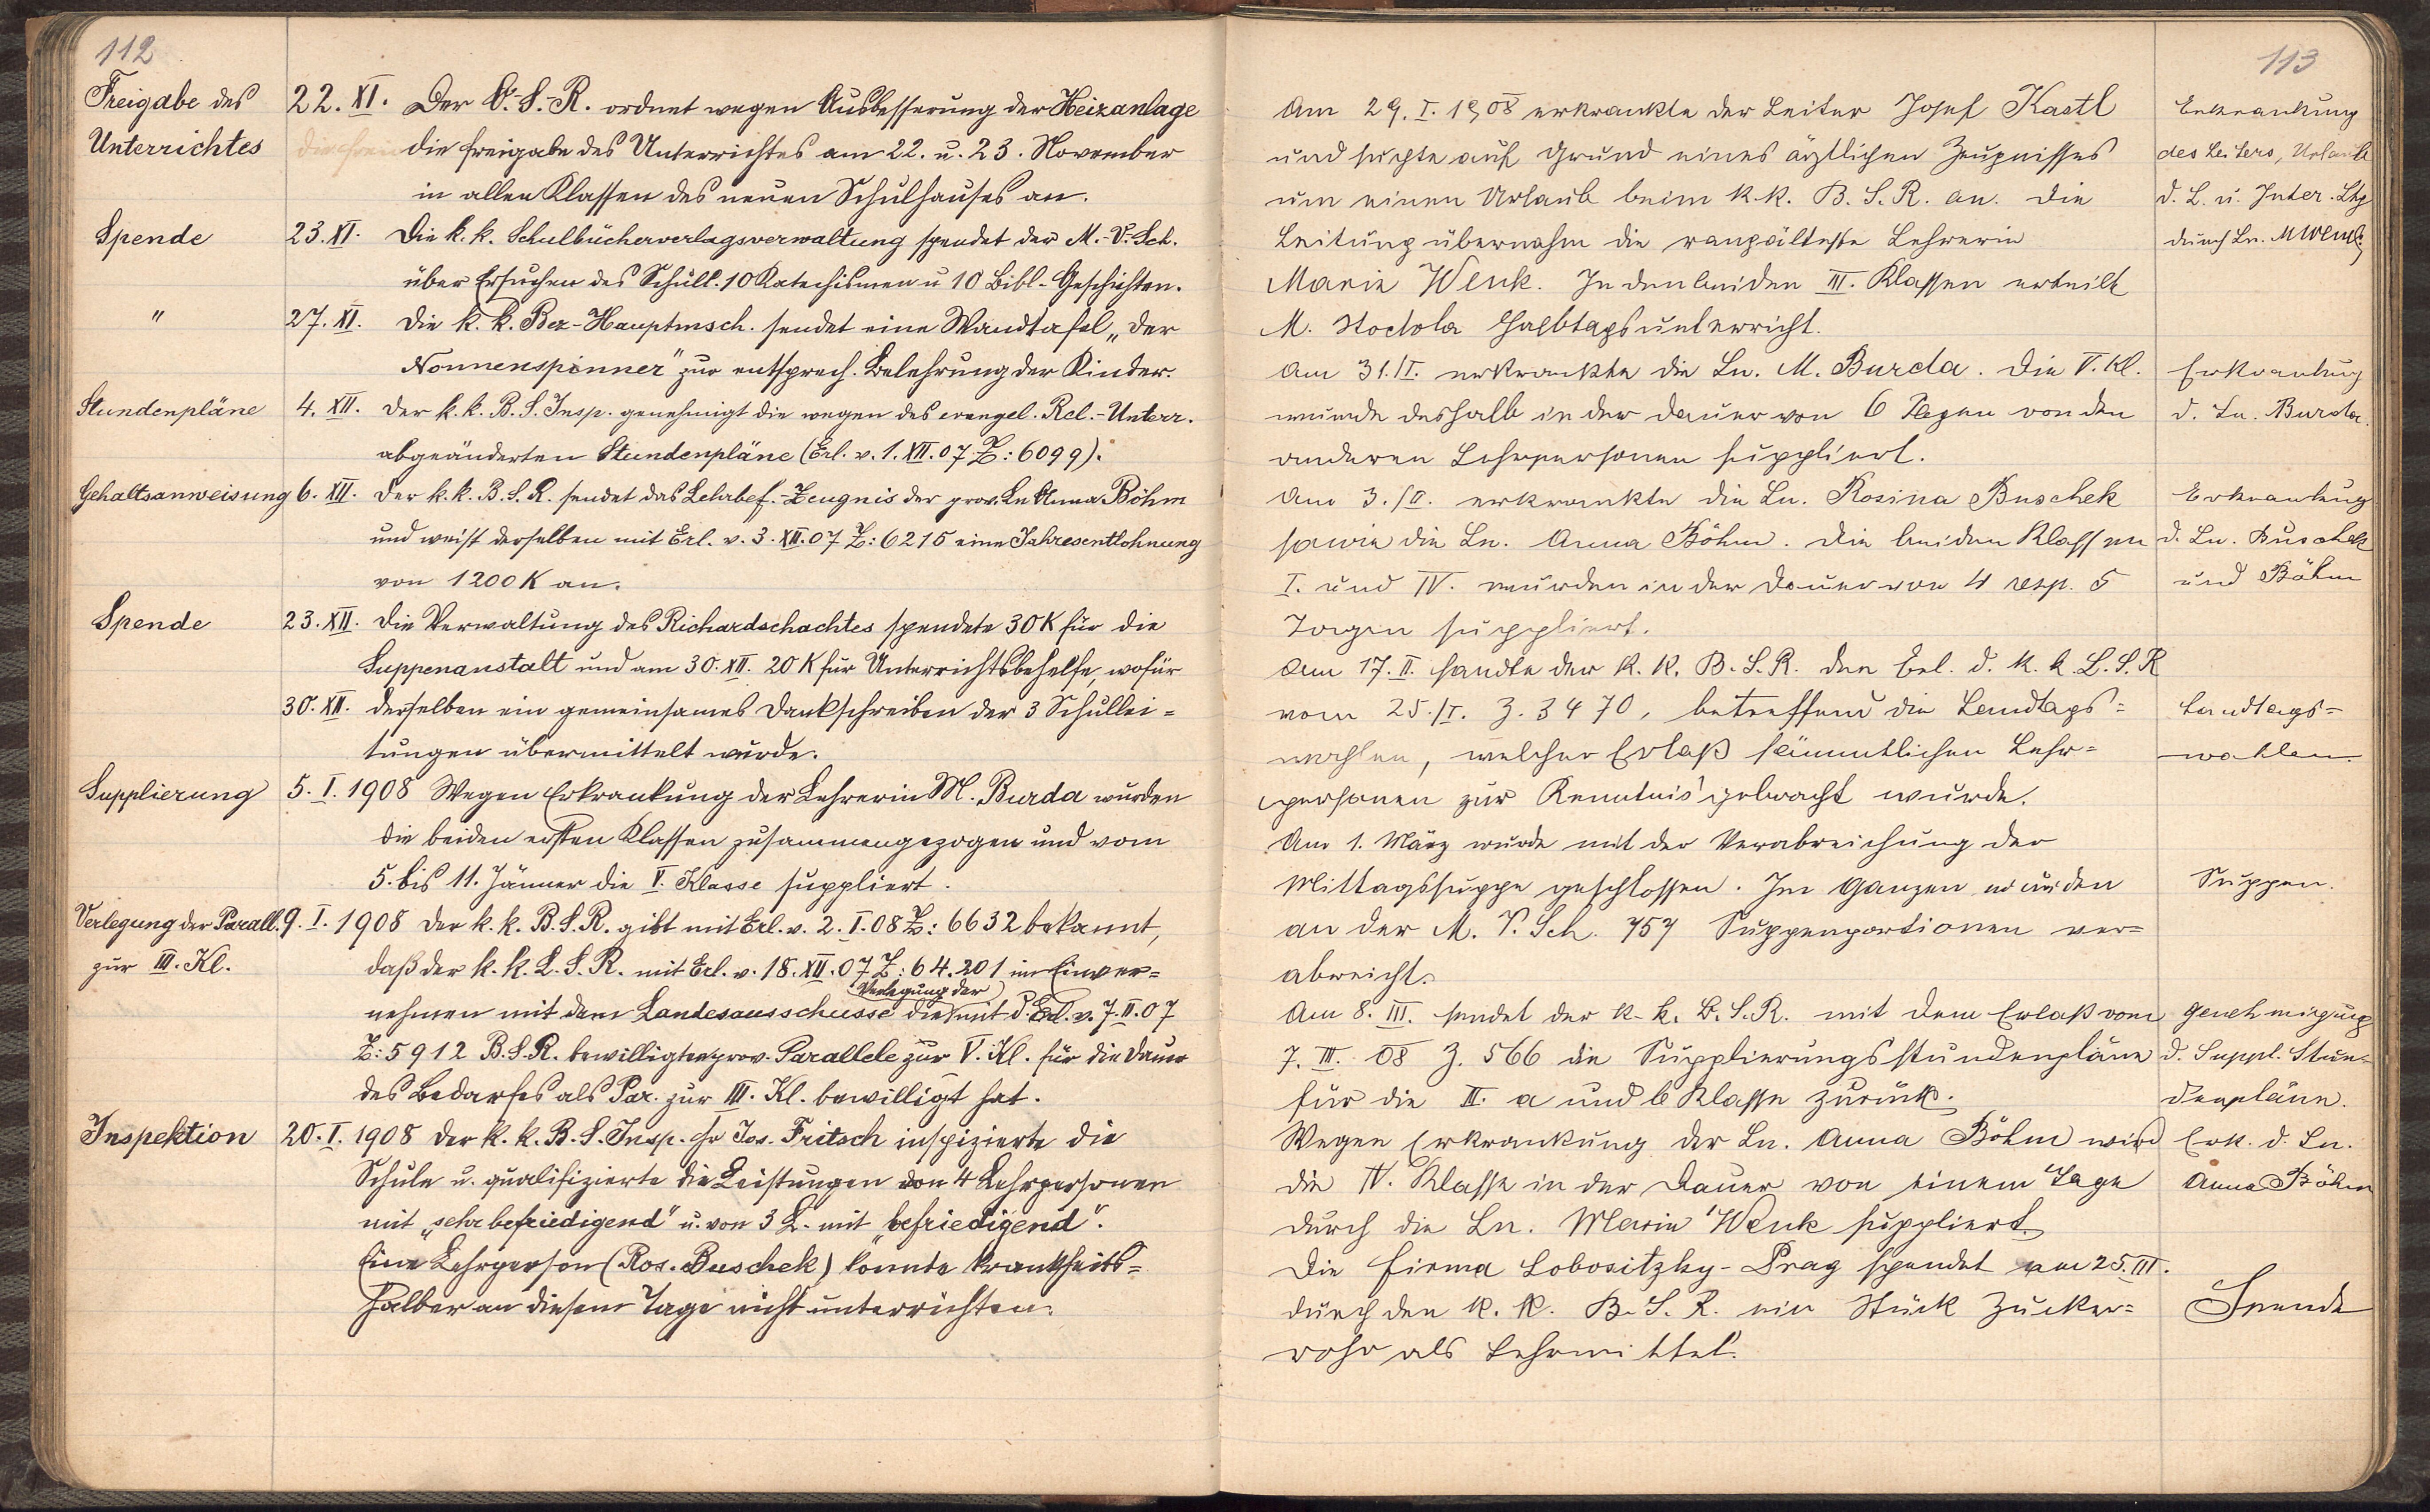 112
Freigabe des
Unterrichtes
22. XI. Der O.-S.-R. ordnet wegen Ausbesserung der Heizanlage
die Freigabe des Unterrichtes am 22. u. 23. November
in allen Klassen des neuen Schulhauses an.
Spende
23. XI. Die k. k. Schulbücherverlagsverwaltung spendet der M.-V.-Sch.
über Ersuchen des Schull. 10 Katechismen u 10 Bibl.-Geschichten.
" 27. XI. Die k. k. Bez-Hauptmsch. sendet eine Wandtafel „Der
Nonnenspinner" zur entsprech. Belehrung der Kinder.
Stundenpläne 4. XII. Der k. k. B. S. Insp. genehmigt die wegen des evangel. Rel.-Unterr.
abgeänderten Stundenpläne (Erl. v. 1. XII. 07 Z: 6099).
Gehaltsanweisung 6. XII. Der k. k. B. S. R. sendet das Lehrbef.-Zeugnis der prov. Ln Anna Böhm
und weist derselben mit Erl. v. 3. XII. 07 Z: 6215 eine Jahresentlohnung
von 1200 K an.
Spende 23. XII. Die Verwaltung des Richardschachtes spendete 30 K für die
Suppenanstalt und am 30. XII. 20 K für Unterrichtsbehelfe, wofür
30. XII. derselben ein gemeinsames Dankschreiben der 3 Schullei=
tungen übermittelt wurde.
Supplierung 5. I. 1908 Wegen Erkrankung der Lehrerin M. Burda wurden
die beiden ersten Klassen zusammengezogen und vom
5. bis 11. Jänner die V. Klasse suppliert.
Verlegung der Parall. 9. I. 1908 Der k. k. B. S. R. gibt mit Erl. v. 2. I. 08 Z: 6632 bekannt,
zur III. Kl. daß der k. k. L. S. R. mit Erl. v. 18. XII. 07 Z: 64.201 im Einver=
Verlegung der
nehmen mit dem Landesausschusse die mit d. Erl. v. 7. II. 07
Z: 5912 B. S. R. bewilligten prov. Parallele zur V. Kl. für die Dauer
des Bedarfes als Par. zur III. Kl. bewilligt hat.
Inspektion 20. I. 1908 Der k. k. B. S. Insp. Hr Jos. Fritsch inspizierte die
Schule u. qualifizierte die Leistungen von 4 Lehrpersonen
mit „sehr befriedigend" u. von 3 L. mit „befriedigend".
Eine Lehrperson (Ros. Buschek) konnte krankheits=
halber an diesem Tage nicht unterrichten.
113
Am 29. I. 1908 erkrankte der Leiter Josef Kastl
und suchte auf Grund eines ärztlichen Zeugnisses
um einen Urlaub beim k. k. B. S. R. an. Die
Leitung übernahm die rangälteste Lehrerin
Marie Wenk. In den beiden III. Klassen erteilt
M. Stoctola Halbtagsunterricht.
Erkrankung
des Leiters, Urlaub
d. L. u. Inter. Ltg
durch Ln. M Wenk
Am 31./I. erkrankte die Ln. M. Burda. Die V. Kl.
wurde deshalb in der Dauer von 6 Tagen von den
anderen Lehrpersonen suppliert.
Erkrankung
d. Ln. Burda.
Am 3./II. erkrankte die Ln. Rosina Buschek
sowie die Ln. Anna Böhm. Die beiden Klassen
I. und IV. wurden in der Dauer von 4 resp. 5
Tagen suppliert.
Erkrankung
d. Ln. Buschek
und Böhm
Am 17. II. sandte der k. k. B. S. R. den Erl. d. k. k. L. S. R
vom 25./I. Z. 3470, betreffend die Landtags=
wahlen, welcher Erlaß sämmtlichen Lehr=
personen zur Kenntnis gebracht wurde.
Landtags=
wahlen.
Am 1. März wurde mit der Verabreichung der
Mittagssuppe geschlossen. Im Ganzen wurden
an der M. V. Sch. 757 Suppenportionen ver=
abreicht.
Suppen.
Am 8. III. sendet der k. k. B. S. R. mit dem Erlaß vom
7. III. 08 Z. 566 die Supplierungsstundenpläne
für die II. a und b Klasse zurück.
Genehmigung
d. Suppl. Stun=
denpläne.
Wegen Erkrankung der Ln. Anna Böhm wird
die IV. Klasse in der Dauer von einem Tage
durch die Ln. Marie Wenk suppliert.
Erk. d. Ln.
Anna Böhm
Die Firma Lobositzky-Prag spendet am 25. III.
durch den k. k. B. S. R. ein Stück Zucker=
rohr als Lehrmittel.
Spende